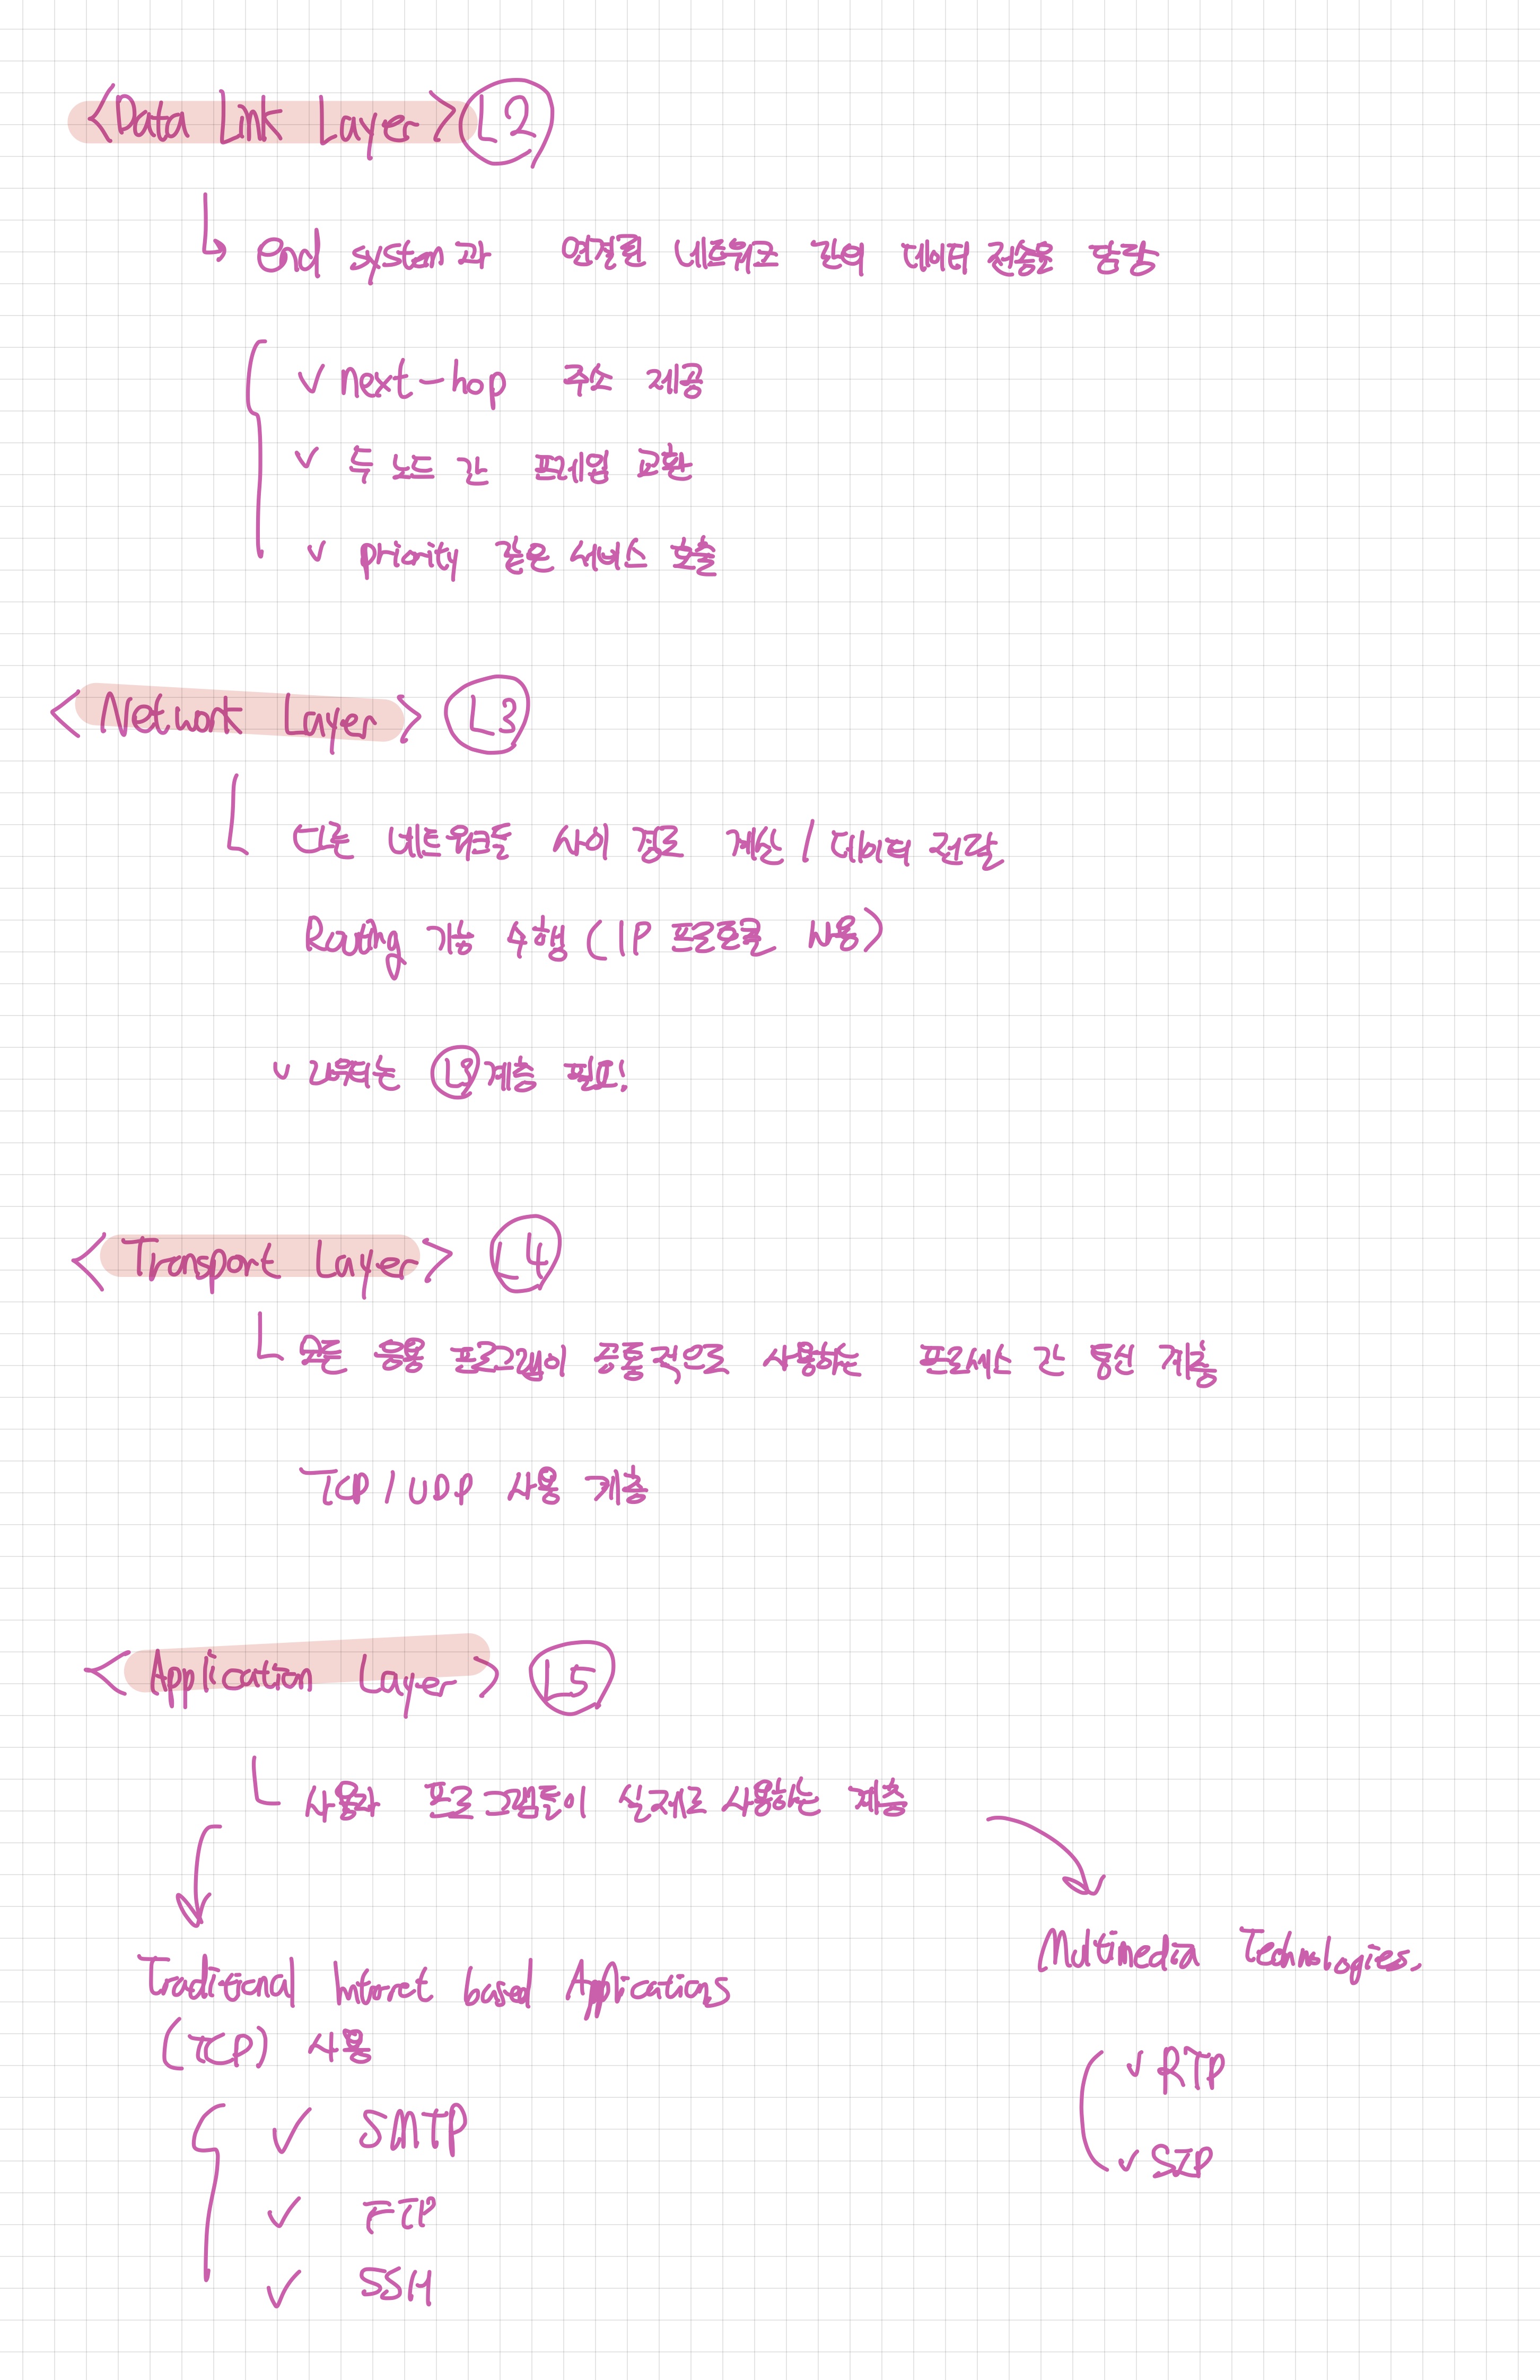 <Data Link Layer> L2
end system과 연결된 네트워크 간의 데이터 전송을 담당
✓ next-hop 주소 제공
✓ 두 노드 간 프레임 교환
✓ priority 같은 서비스 호출
<Network Layer> L3
다른 네트워크들 사이 경로 계산 / 데이터 전달
Routing 기능 수행 (IP 프로토콜 사용)
✓ 라우터는 L3 계층 필요!
<Transport Layer> L4
모든 응용 프로그램이 공통적으로 사용하는 프로세스 간 통신 계층
TCP / UDP 사용 계층
<Application Layer> L5
사용자 프로그램들이 실제로 사용하는 계층
Traditional Internet based Applications
(TCP) 사용
✓ SMTP
✓ FTP
✓ SSH
Multimedia Technologies.
✓ RTP
✓ SIP